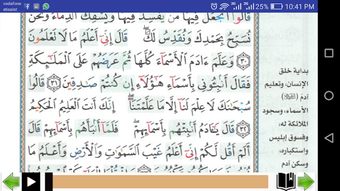 vodafone
etisalat
25% 10:41 PM
قَالُوٓا۟ أَتَجْعَلُ فِيهَا مَن يُفْسِدُ فِيهَا وَيَسْفِكُ ٱلدِّمَآءَ وَنَحْنُ
نُسَبِّحُ بِحَمْدِكَ وَنُقَدِّسُ لَكَ قَالَ إِنِّىٓ أَعْلَمُ مَا لَا تَعْلَمُونَ
٣٠ وَعَلَّمَ ءَادَمَ ٱلْأَسْمَآءَ كُلَّهَا ثُمَّ عَرَضَهُمْ عَلَى ٱلْمَلَٰٓئِكَةِ
فَقَالَ أَنۢبِـُٔونِى بِأَسْمَآءِ هَٰٓؤُلَآءِ إِن كُنتُمْ صَٰدِقِينَ ٣١ قَالُوا۟
سُبْحَٰنَكَ لَا عِلْمَ لَنَآ إِلَّا مَا عَلَّمْتَنَآ إِنَّكَ أَنتَ ٱلْعَلِيمُ ٱلْحَكِيمُ
٣٢ قَالَ يَٰٓـَٔادَمُ أَنۢبِئْهُم بِأَسْمَآئِهِمْ فَلَمَّآ أَنۢبَأَهُم بِأَسْمَآئِهِمْ قَالَ
أَلَمْ أَقُل لَّكُمْ إِنِّىٓ أَعْلَمُ غَيْبَ ٱلسَّمَٰوَٰتِ وَٱلْأَرْضِ وَأَعْلَمُ مَا
بداية خلق
الإنسان، وتعليم
آدم
الأسماء، وسجود
الملائكة له،
وفسوق إبليس
واستكباره،
وسكن آدم